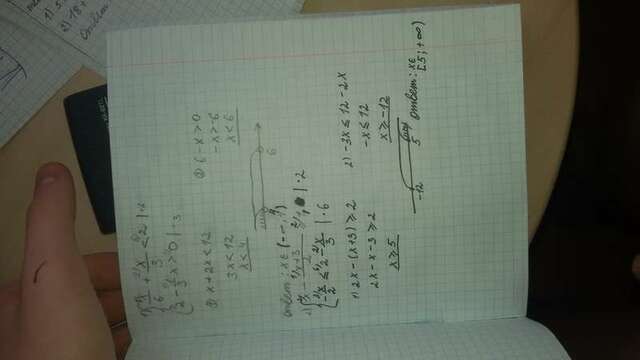 1) { x/6 + 2)x/3 < 6)2 | ·6
{ 2 - 1/3 x > 0 | ·3
① x + 2x < 12
3x < 12
x < 4
② 6 - x > 0
-x > -6
x < 6
4 6
Ответ: x∈(-∞; 4)
2) { x - x+3/2 ≥ 1 | ·2
{ -x/2 ≤ 2 - x/3 | ·6
1) 2x - (x+3) ≥ 2
2x - x - 3 ≥ 2
x ≥ 5
2) -3x ≤ 12 - 2x
-x ≤ 12
x ≥ -12
-12 5
Ответ: x∈
[5; +∞)